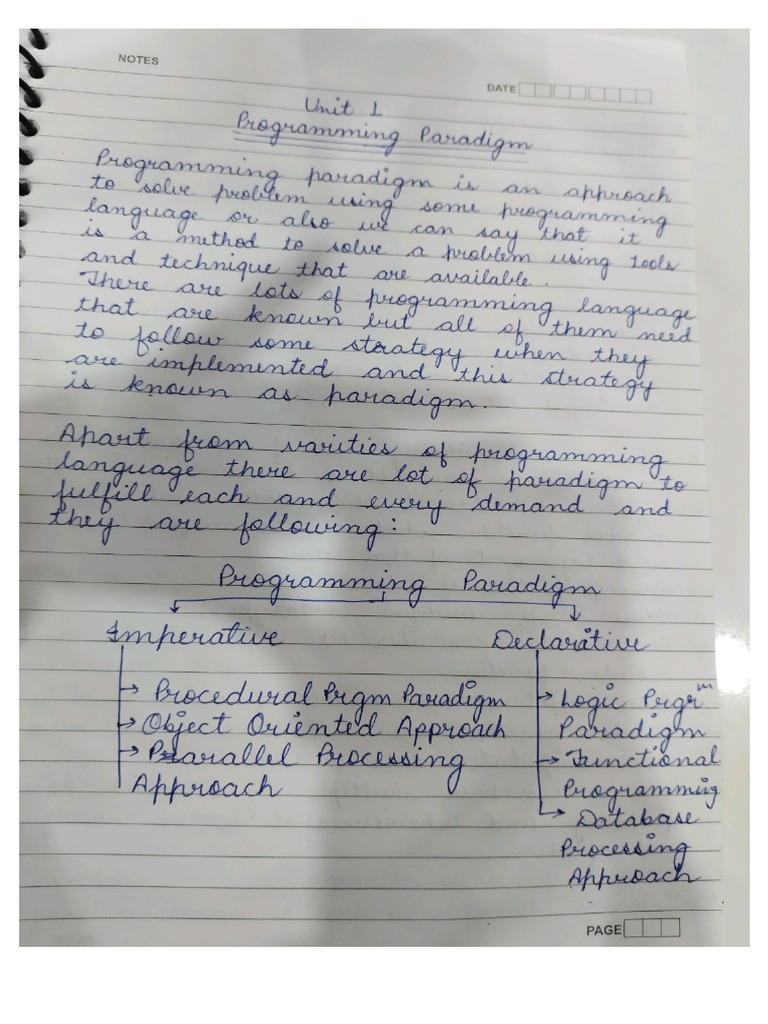 NOTES
DATE
Unit 1
Programming Paradigm
Programming paradigm is an approach
to solve problem using some programming
language or also we can say that it
is a method to solve a problem using tools
and technique that are available.
There are lots of programming language
that are known but all of them need
to follow some strategy when they
are implemented and this strategy
is known as paradigm.
Apart from varities of programming
language there are lot of paradigm to
fulfill each and every demand and
they are following:
Programming Paradigm
Imperative Declarative
→ Procedural Prgm Paradigm → Logic Prgrm
→ Object Oriented Approach Paradigm
→ Parallel Processing → Functional
Approach Programming
→ Database
Processing
Approach
PAGE